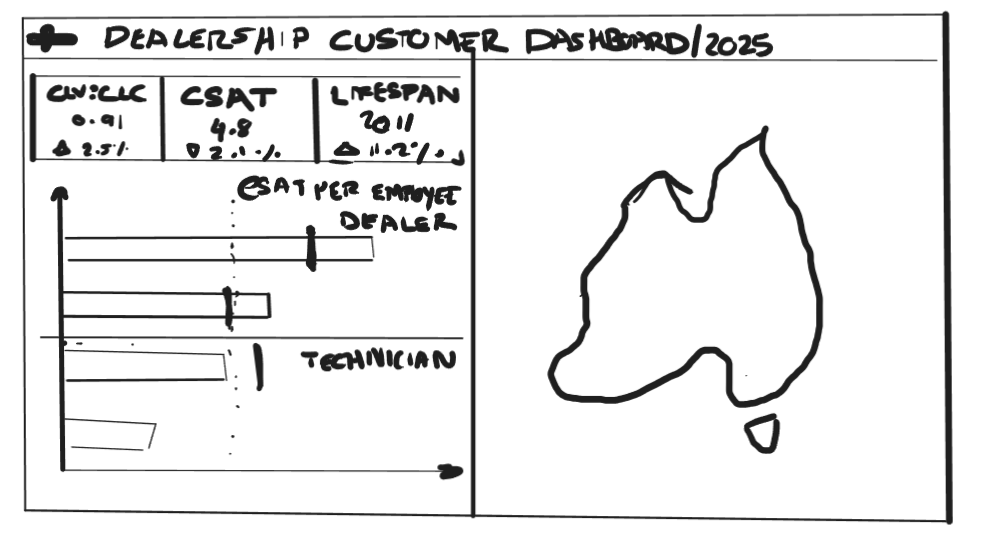 DEALERSHIP CUSTOMER DASHBOARD/2025
CLV:CLC
0.91
△ 2.5%
CSAT
4.8
▽ 2.1%
LIFESPAN
2011
△ 11.2%
CSAT PER EMPLOYEE
DEALER
TECHNICIAN